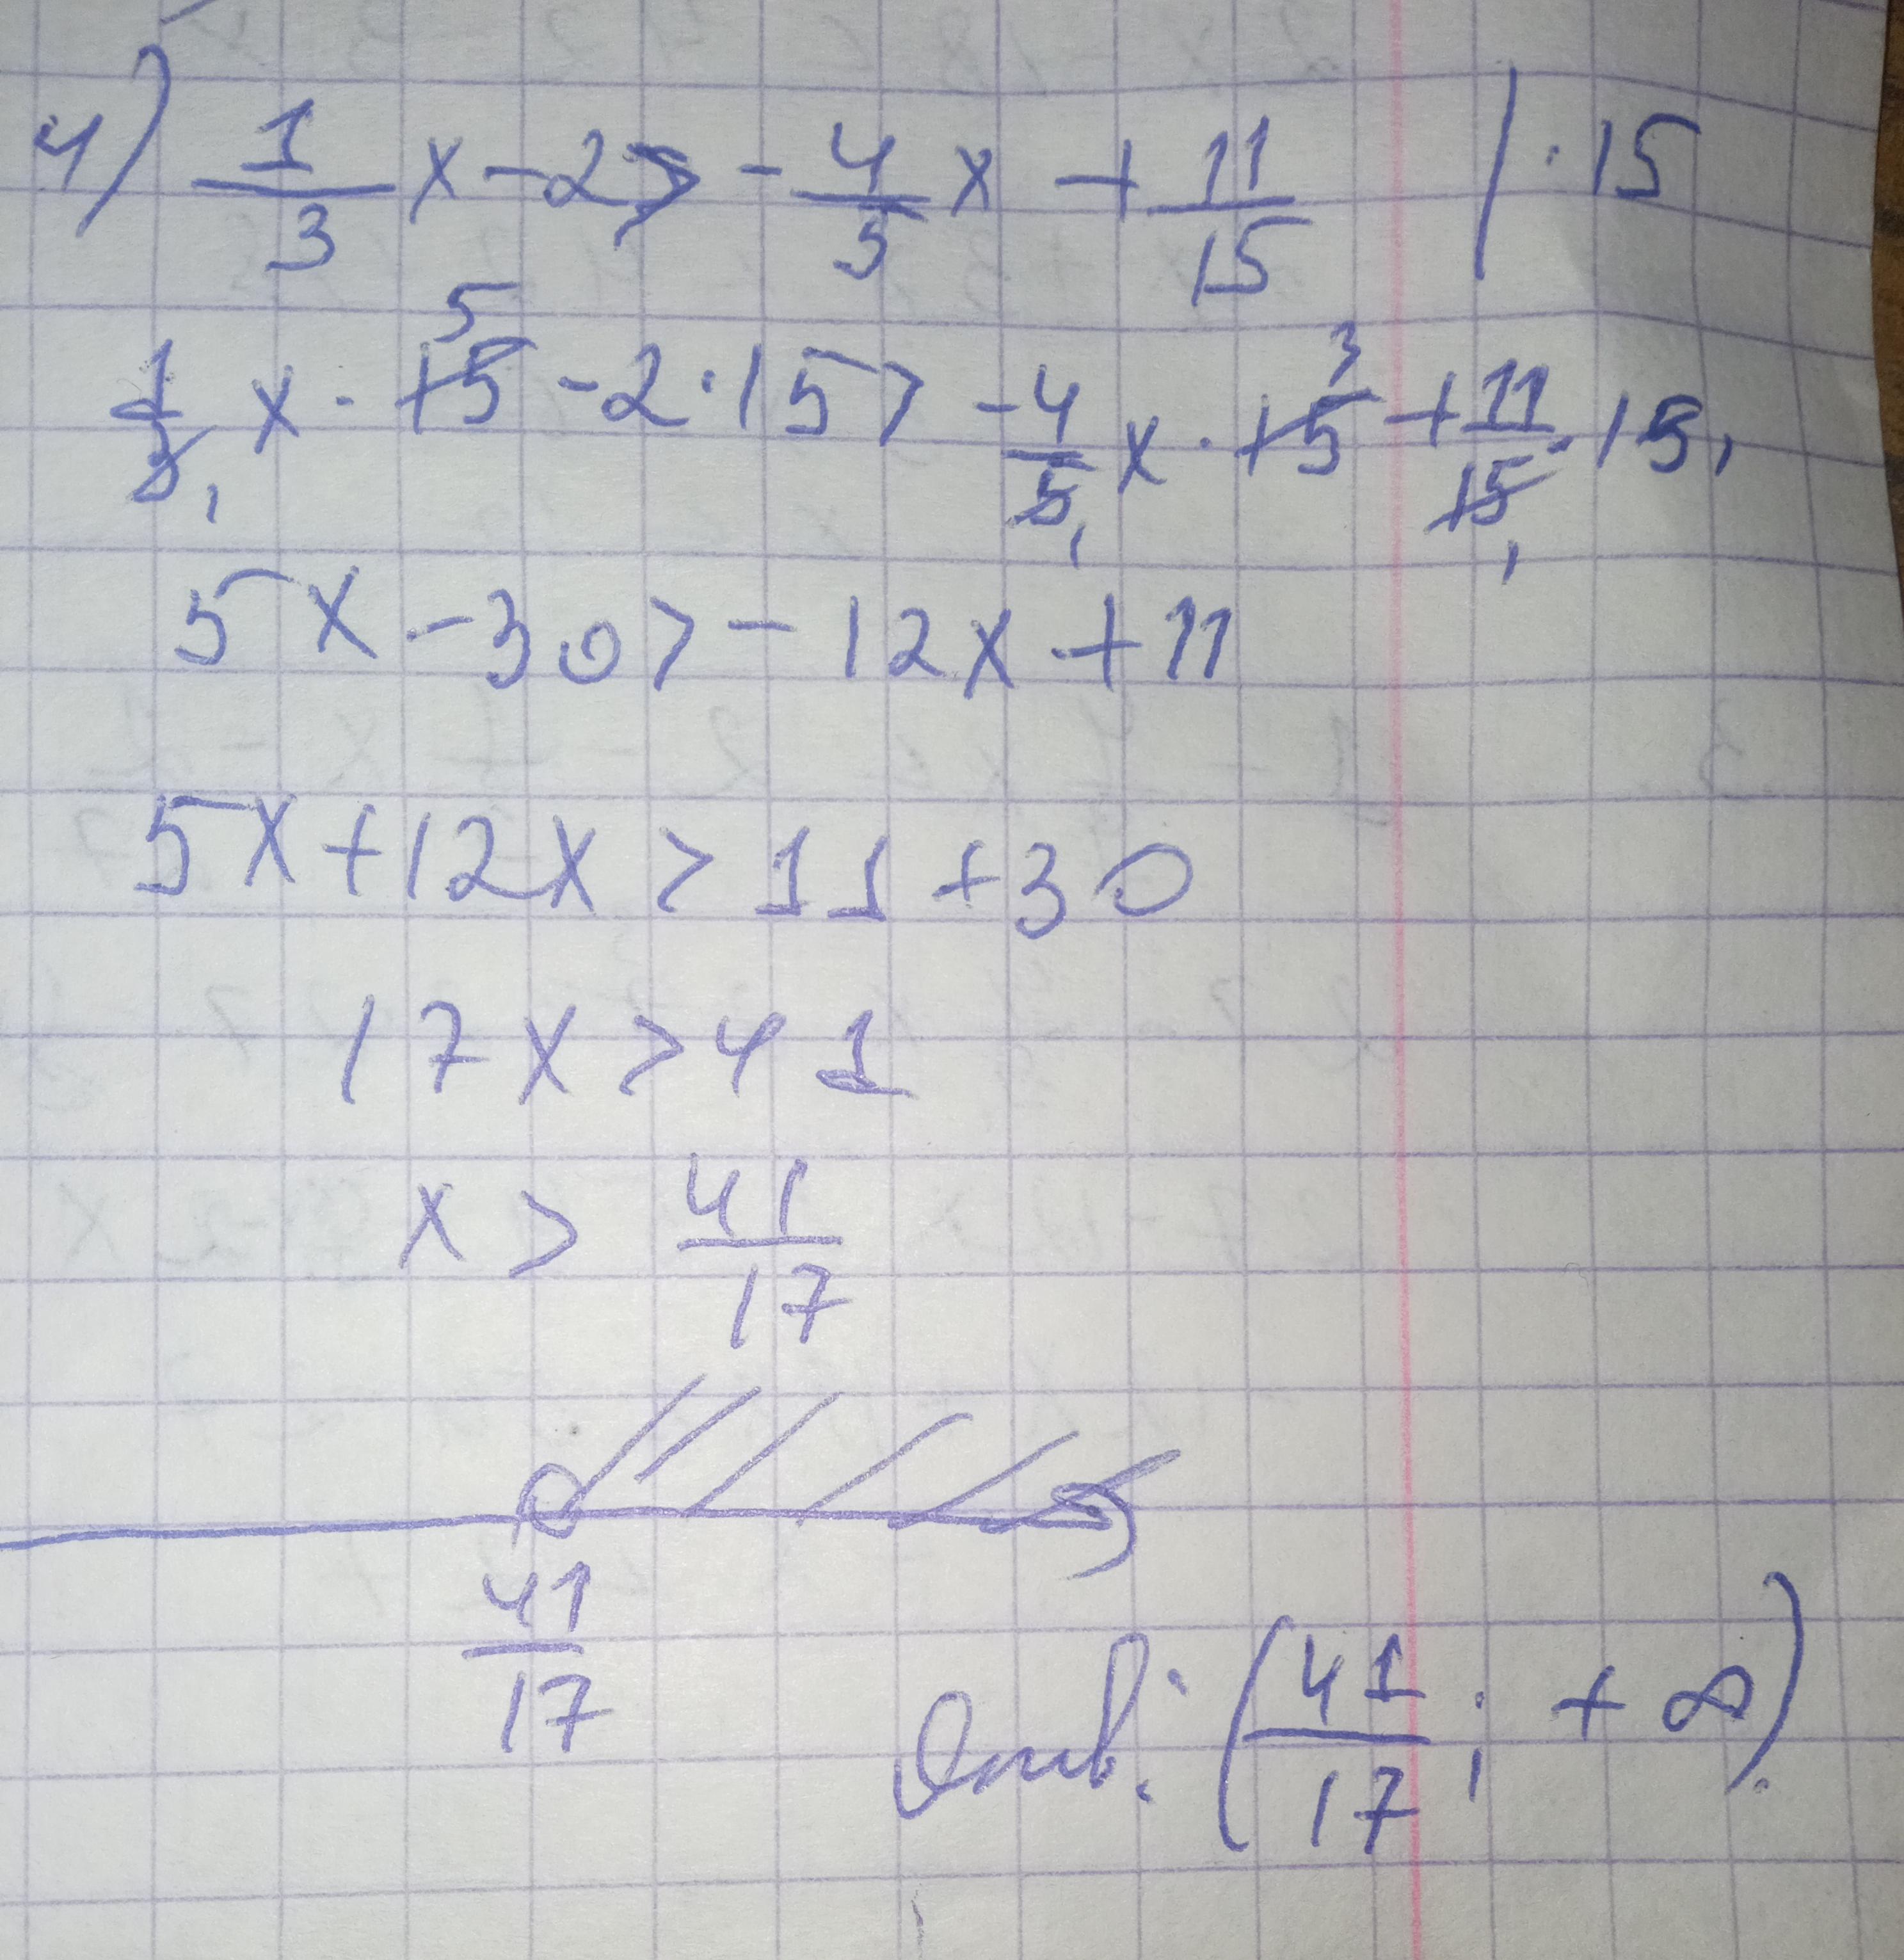 4) 1/3 x - 2 > - 4/5 x + 11/15 | · 15
1/3 1 x · 15 5 - 2 · 15 > - 4/5 1 x · 15 3 + 11/15 1 · 15 1
5x - 30 > - 12x + 11
5x + 12x > 11 + 30
17x > 41
x > 41/17
41/17
Отв.: (41/17; + ∞)